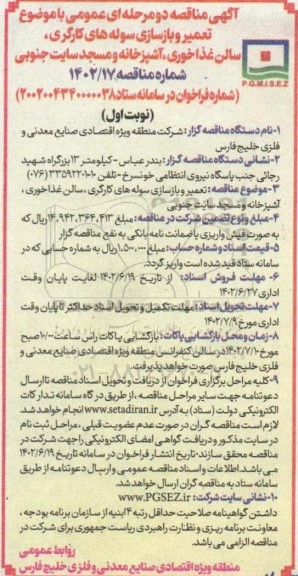 آگهی مناقصه دو مرحله ای عمومی با موضوع
تعمیر و بازسازی سوله های کارگری،
سالن غذاخوری، آشپزخانه و مسجد سایت جنوبی
شماره مناقصه ۱۴۰۲/۱۷
(شماره فراخوان در سامانه ستاد ۲۰۰۲۰۰۴۳۴۰۰۰۰۰۳۸)
(نوبت اول)
P.G.M.I.S.E.Z
۱-نام دستگاه مناقصه گزار: شرکت منطقه ویژه اقتصادی صنایع معدنی و
فلزی خلیج فارس
۲-نشانی دستگاه مناقصه گزار: بندرعباس - کیلومتر ۱۳ بزرگراه شهید
رجائی جنب پاسگاه نیروی انتظامی خونسرخ - تلفن ۳۳۵۹۲۲۰۱۰ (۰۷۶)
۳-موضوع مناقصه: تعمیر و بازسازی سوله های کارگری، سالن غذاخوری،
آشپزخانه و مسجد سایت جنوبی
۴-مبلغ و نوع تضمین شرکت در مناقصه: مبلغ ۱۴.۹۴۲.۳۶۴.۴۱۳ ریال که
به صورت فیش واریزی یا ضمانت نامه بانکی به نفع مناقصه گزار
۵-قیمت اسناد و شماره حساب: مبلغ ۱.۵۰۰.۰۰۰ ریال به شماره حسابی که در
سامانه ستاد قید شده است واریز گردد.
۶- مهلت فروش اسناد: از تاریخ ۱۴۰۲/۶/۱۹ لغایت پایان وقت
اداری ۱۴۰۲/۶/۲۷
۷-مهلت تحویل اسناد: مهلت تکمیل و تحویل اسناد حداکثر تا پایان وقت
اداری مورخ ۱۴۰۲/۷/۹
۸-زمان و محل بازگشایی پاکات: بازگشایی پاکات راس ساعت ۱۰/۰۰ صبح
مورخ ۱۴۰۲/۷/۱۰ در سالن کنفرانس منطقه ویژه اقتصادی صنایع معدنی و
فلزی خلیج فارس صورت خواهد پذیرفت.
۹-کلیه مراحل برگزاری فراخوان از دریافت و تحویل اسناد مناقصه تا ارسال
دعوتنامه جهت سایر مراحل مناقصه، از طریق درگاه سامانه تدارکات
الکترونیکی دولت (ستاد) به آدرس www.setadiran.ir انجام خواهد شد.
لازم است مناقصه گران در صورت عدم عضویت قبلی، مراحل ثبت نام
در سایت مذکور و دریافت گواهی امضای الکترونیکی را جهت شرکت در
مناقصه محقق سازند؛ تاریخ انتشار فراخوان در سامانه تاریخ ۱۴۰۲/۶/۱۹
می باشد. اطلاعات و اسناد مناقصه عمومی و ارسال دعوتنامه از طریق
سامانه ستاد به مناقصه گران ارسال خواهد شد.
۱۰-نشانی سایت شرکت: www.PGSEZ.ir
داشتن گواهینامه صلاحیت حداقل رتبه ۴ ابنیه از سازمان برنامه بودجه،
معاونت برنامه ریزی و نظارت راهبردی ریاست جمهوری برای شرکت در
مناقصه الزامی می باشد.
روابط عمومی
منطقه ویژه اقتصادی صنایع معدنی و فلزی خلیج فارس